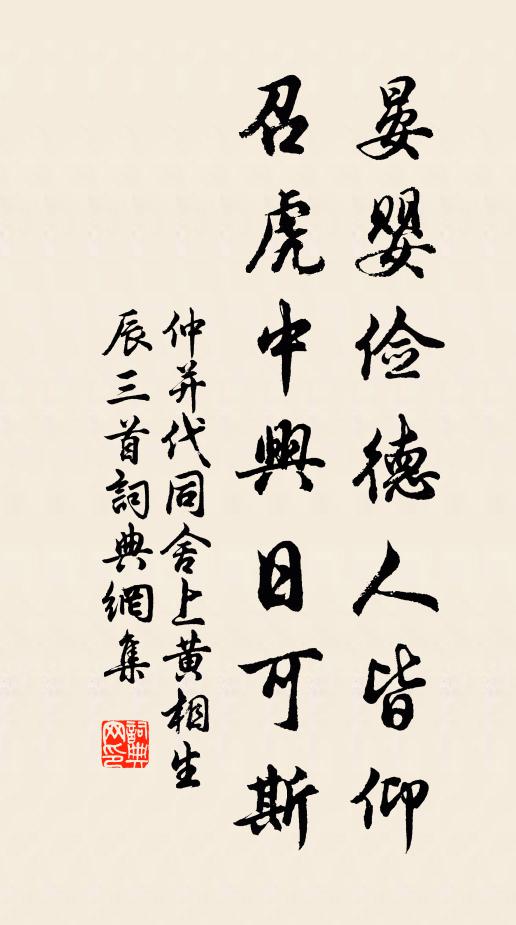 晏婴俭德人皆仰
召虎中興日可斯
仲并代同舍上黄相生
辰三首詞典網集
詞典
网印